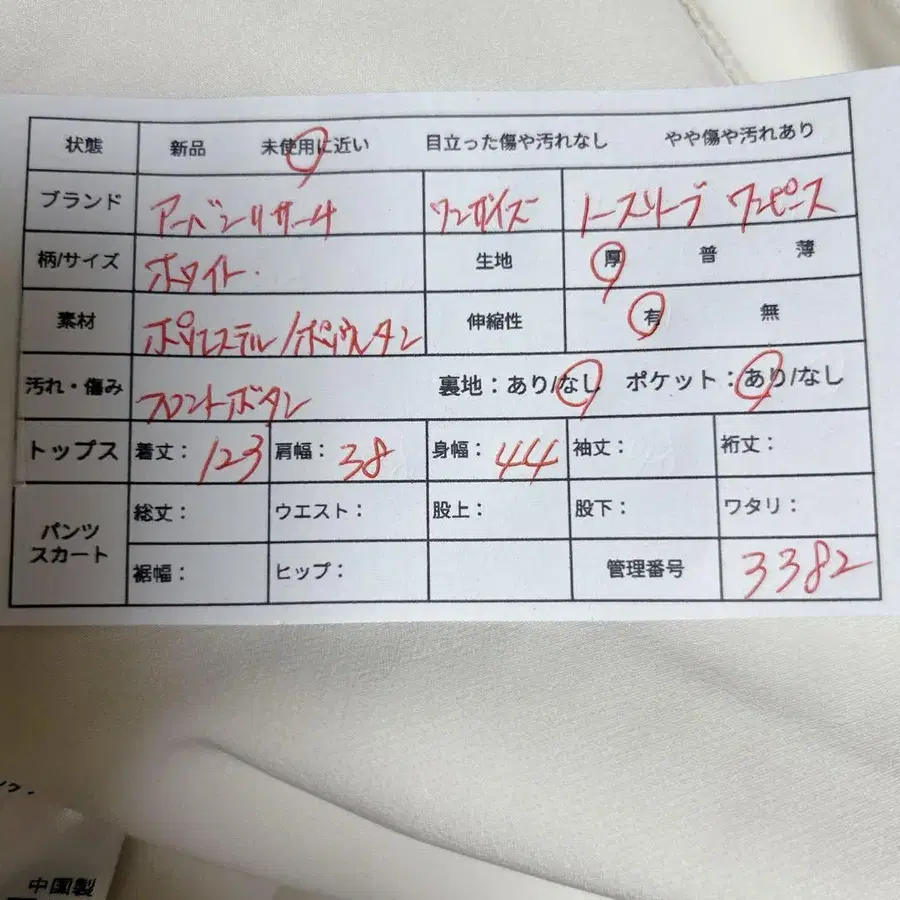 状態 新品 未使用に近い 目立った傷や汚れなし やや傷や汚れあり
ブランド アーバンリサーチ ワンサイズ ノースリーブ ワンピース
柄/サイズ ホワイト. 生地 厚 普 薄
素材 ポリエステル/ポリウレタン 伸縮性 有 無
汚れ・傷み フロントボタン 裏地:あり/なし ポケット:あり/なし
トップス 着丈: 123 肩幅: 38 身幅: 444 袖丈: 裄丈:
パンツ
スカート
総丈: ウエスト: 股上: 股下: ワタリ:
裾幅: ヒップ: 管理番号 3382
中國製